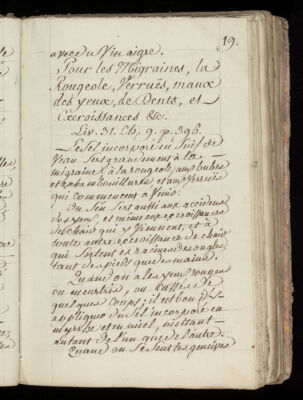 19.
avec du Vin aigre.
Pour les Migraines, la
Rougeole, Verruës, maux
des yeux, de Dents, et
Excroissances &c.
Liv. 31. Ch. 9. p. 396.
Le Sel incorporé en Suif de
Veau sert grandement à la
migraine à la rougeole, aux bubes
et aux verruës
qui commencent à venir.
On s'en sert aussi aux accidens
des yeux, et même aux excroissances
de chair qui y viennent, et à
toute autre excroissance de chair
qui sortent és racines des ongles
tant des pieds que des mains.
Quand on a les yeux rouges
ou meurtris, ou
quelques coups; il est bon d'y
appliquer du sel incorporé en
myrrhe et en miel, mettant
autant de l'un que de l'autre.
Quand on se sent les gencives